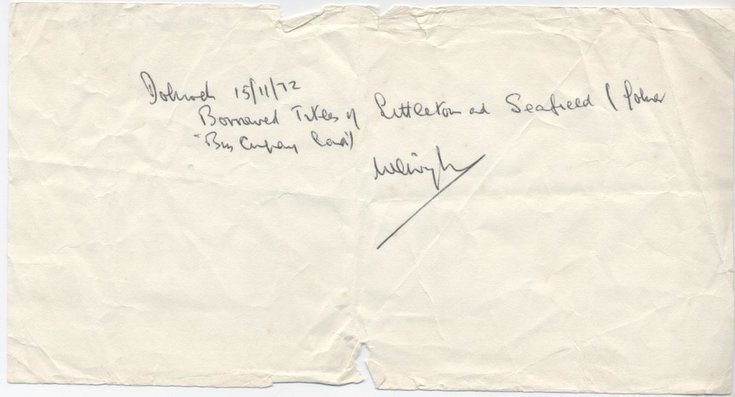 15/11/72
Borrowed Titles of Littleton and Seafield (
"Bus Company Land")